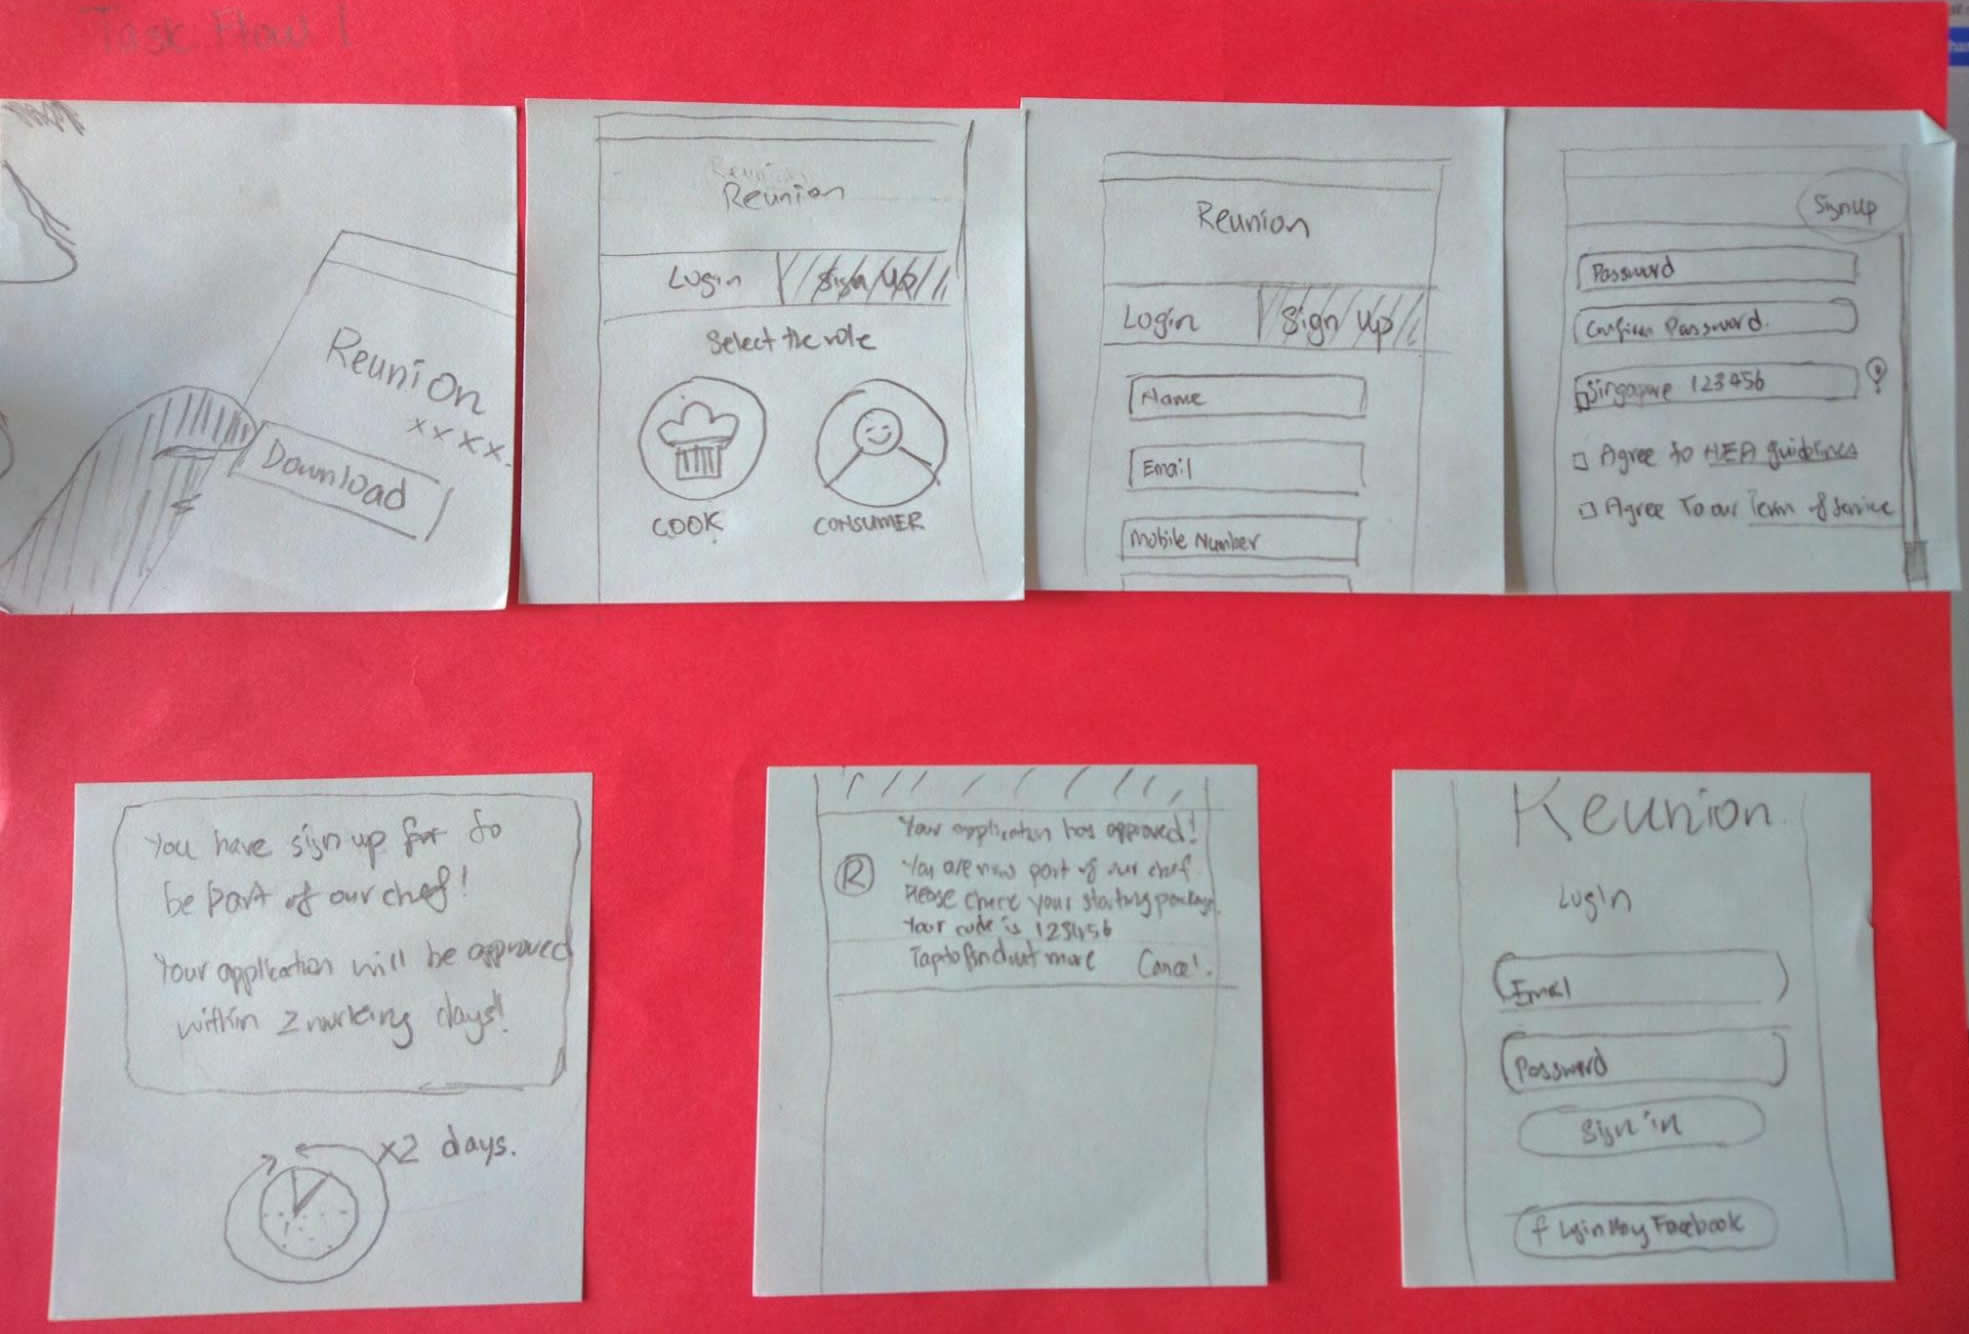 Task Flow 1
Reunion
xxxx.
Download
Reunion
Reunion
Login Sign Up
Select the role
COOK CONSUMER
Reunion
Login Sign Up
Name
Email
Mobile Number
Sign Up
Password
Confirm Password.
Singapore 123456
Agree to guidelines
Agree To our Term of Service
You have sign up for to
be part of our chef!
Your application will be approved
within 2 working days!
x2 days.
Your application has approved!
R
You are now part of our chef.
Please check your starting package.
Your code is 123456
Tap to find out more Cancel.
Reunion
Login
Email
Password
Sign in
f Login Facebook